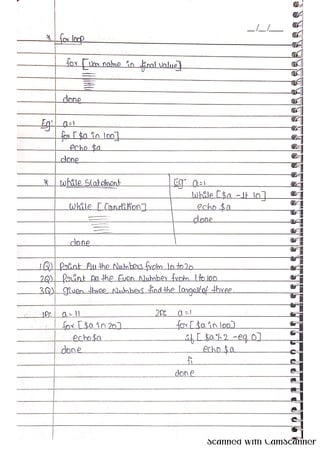 __/__/__
* for loop
for [ Var name in final value]
done
Eg: a=1
for [ $a in 100]
echo $a
done
* While Statement
While [ Condition]
done
Eg: a=1
While [$a -lt 10]
echo $a
done
1Q) Print All the Numbers from 10 to 20
2Q) Print All the Even Number from 1 to 100
3Q) Given three Numbers find the largest of three.
1P: a=11
for [ $a in 20]
echo $a
done
2P: a=1
for [ $a in 100]
if [ $a%2 -eq 0]
echo $a
fi
done
Scanned with CamScanner